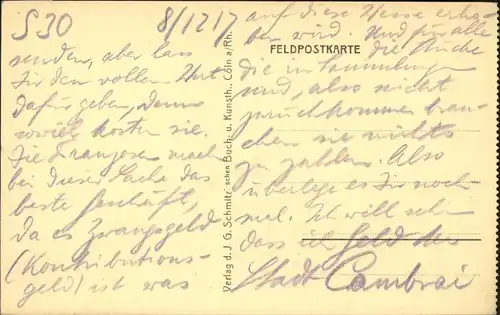 S 30
8/12 17
senden, aber lass
Dir den vollen Wert
dafür geben, denn
soviel kosten sie.
Die Franzosen machen
bei dieser Sache das
beste Geschäft,
da es Zwangsgeld
(Kontributions-
geld) ist was
Verlag d. J. G. Schmitz'schen Buch- u. Kunsth., Cöln a/Rh.
auf diese Weise erho-
ben wird. Und für alle
FELDPOSTKARTE
die Stücke
die in Sammlungen
sind, also nicht
zurückkommen brau-
chen sie nichts
zu zahlen. Also
überlege es Dir noch
mal. Ich will sehen
dass ich Geld der
Stadt Cambrai